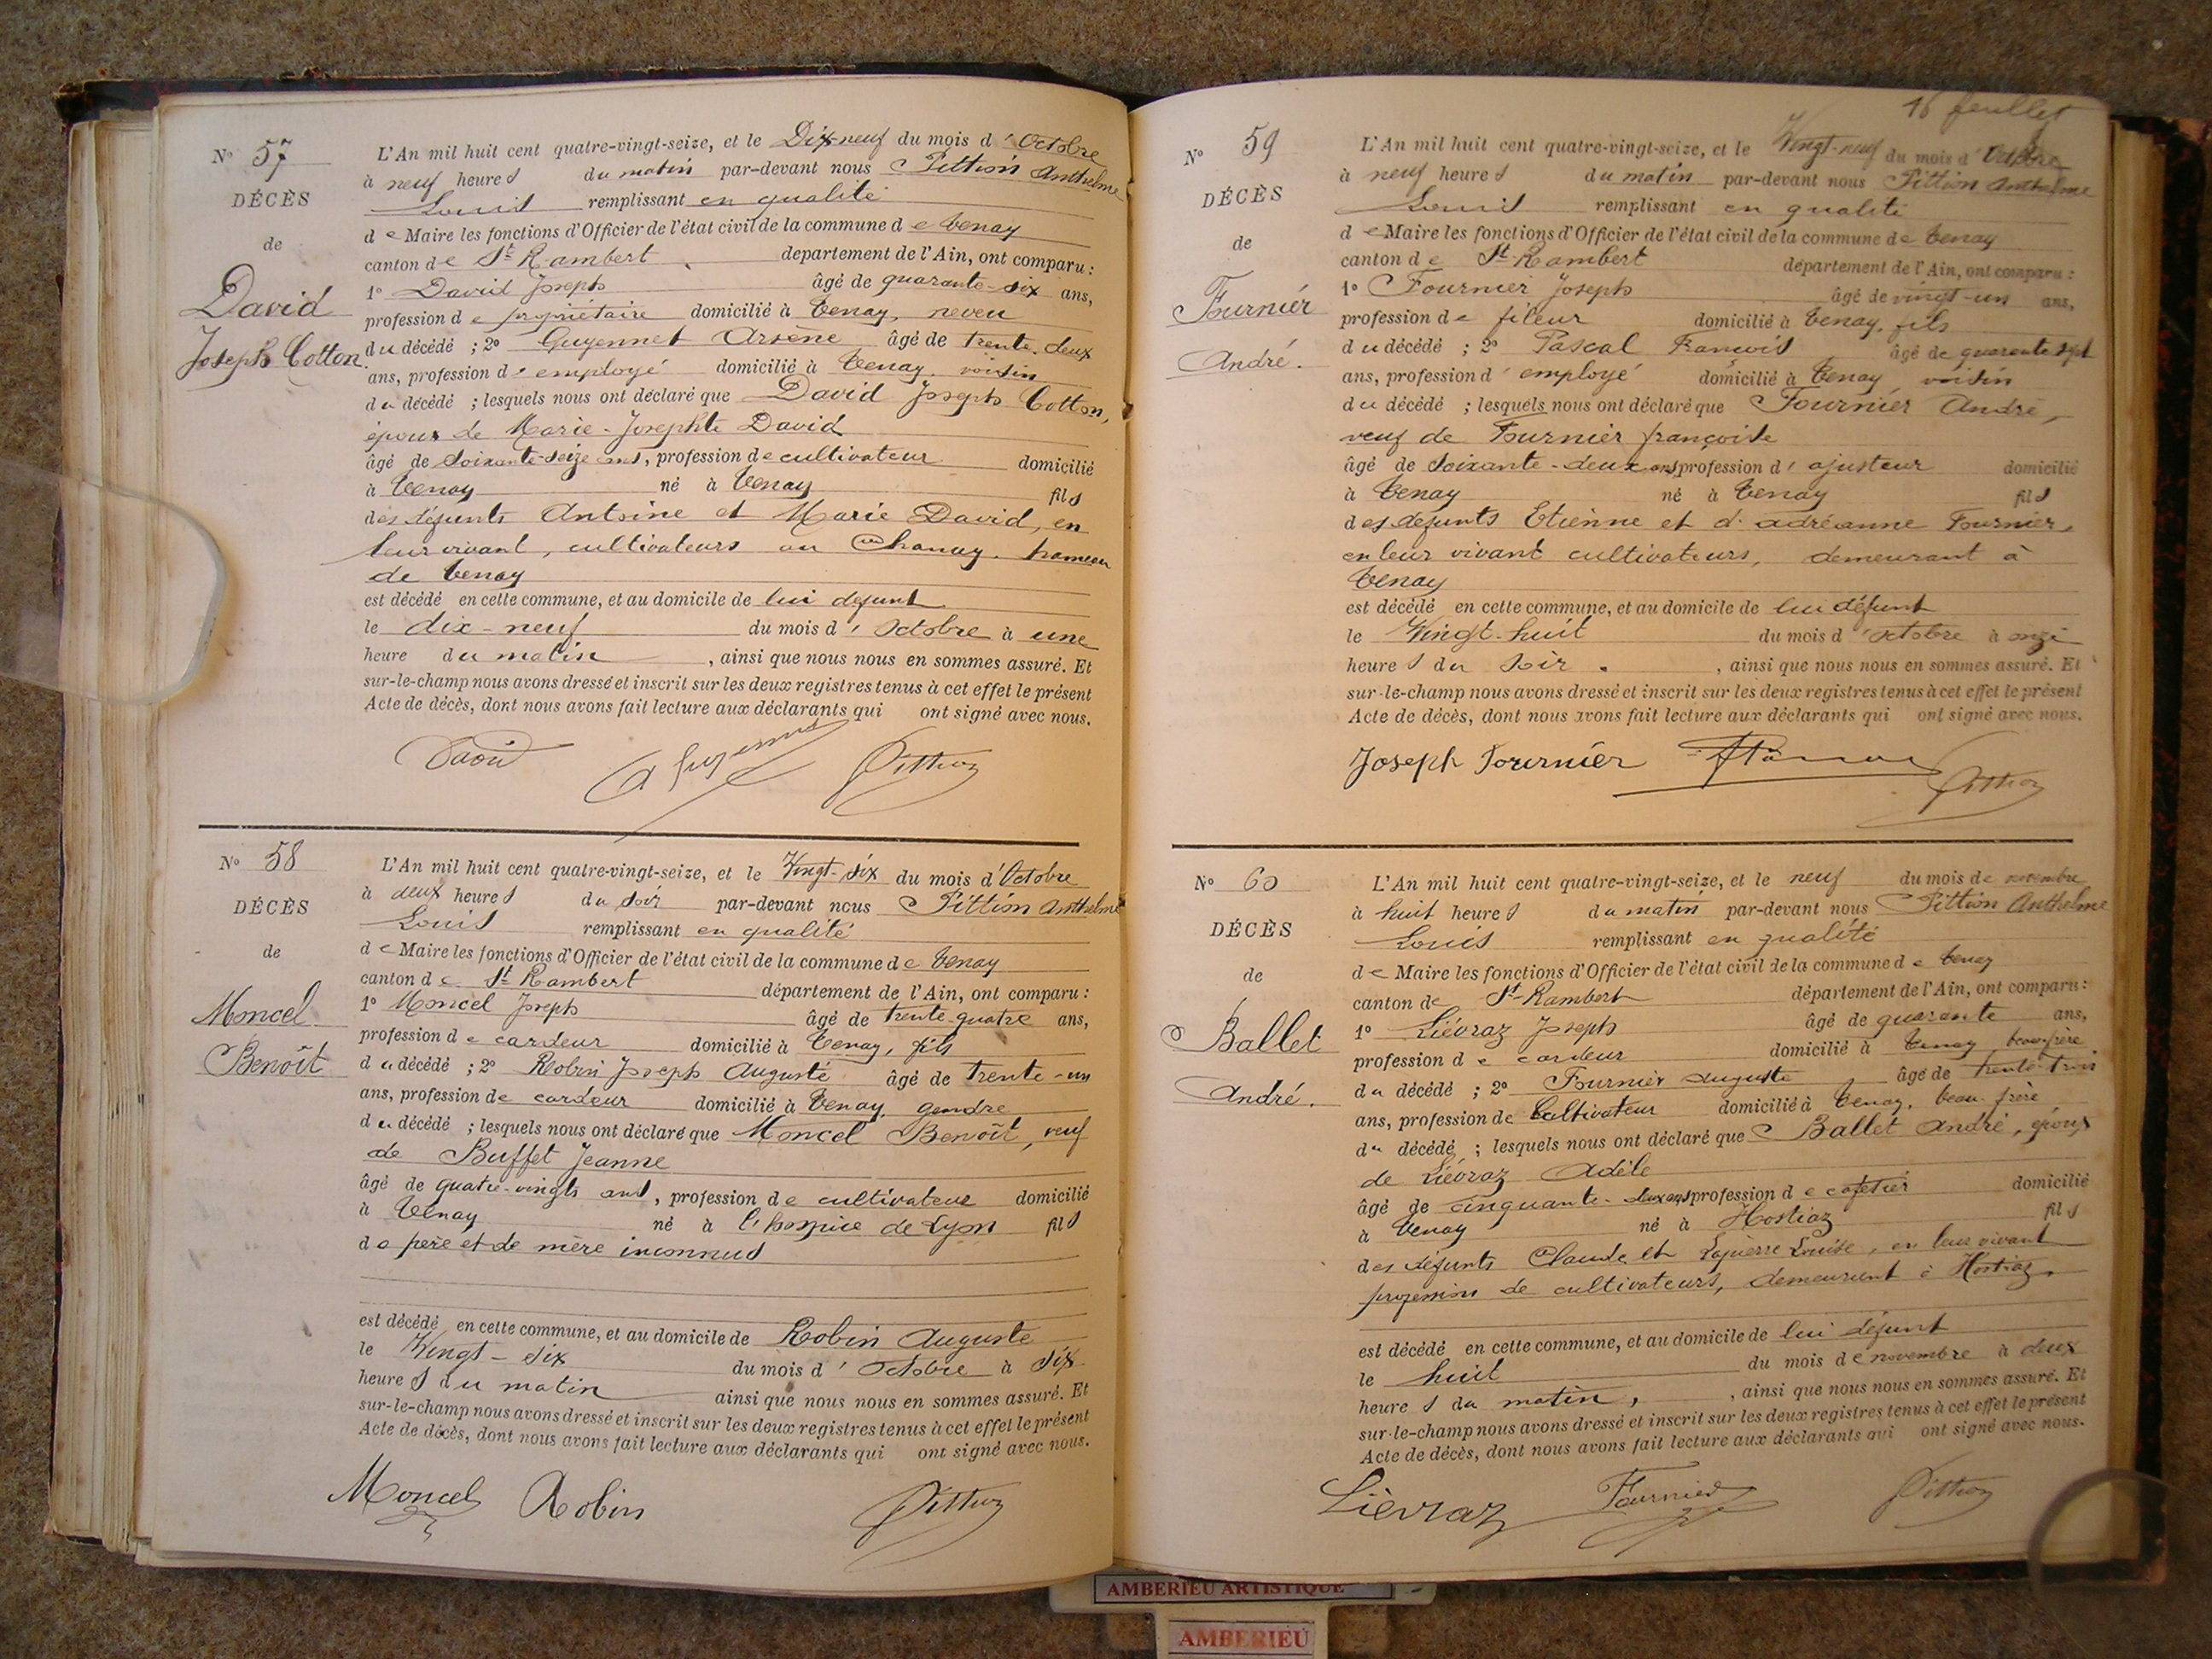 N° 57
DÉCÈS
de
David
Joseph Cotton
L'An mil huit cent quatre-vingt-seize, et le Dix-neuf du mois d'Octobre
à neuf heures du matin par-devant nous Pittion Anthelme
Louis remplissant en qualité
de Maire les fonctions d'Officier de l'état civil de la commune de Tenay
canton de St Rambert département de l'Ain, ont comparu :
1° David Joseph âgé de quarante-six ans,
profession de propriétaire domicilié à Tenay, neveu
du décédé ; 2° Guyennet Arsène âgé de trente-deux
ans, profession d'employé domicilié à Tenay, voisin
du décédé ; lesquels nous ont déclaré que David Joseph Cotton,
époux de Marie-Josephte David
âgé de soixante-seize ans, profession de cultivateur domicilié
à Tenay né à Tenay fils
des défunts Antoine et Marie David, en
leur vivant, cultivateurs au Chanay, hameau
de Tenay
est décédé en cette commune, et au domicile de lui défunt
le dix-neuf du mois d'Octobre à une
heure du matin, ainsi que nous nous en sommes assuré. Et
sur-le-champ nous avons dressé et inscrit sur les deux registres tenus à cet effet le présent
Acte de décès, dont nous avons fait lecture aux déclarants qui ont signé avec nous.
David A Guyennet Pittion
N° 58
DÉCÈS
de
Moncel
Benoît
L'An mil huit cent quatre-vingt-seize, et le Vingt-six du mois d'Octobre
à deux heures du soir par-devant nous Pittion Anthelme
Louis remplissant en qualité
de Maire les fonctions d'Officier de l'état civil de la commune de Tenay
canton de St Rambert département de l'Ain, ont comparu :
1° Moncel Joseph âgé de trente-quatre ans,
profession de cardeur domicilié à Tenay, fils
du décédé ; 2° Robin Joseph Auguste âgé de trente-un
ans, profession de cardeur domicilié à Tenay, gendre
du décédé ; lesquels nous ont déclaré que Moncel Benoît, veuf
de Buffet Jeanne
âgé de quatre-vingts ans, profession de cultivateur domicilié
à Tenay né à l'hospice de Lyon fils
de père et de mère inconnus
est décédé en cette commune, et au domicile de Robin Auguste
le Vingt-six du mois d'Octobre à six
heures du matin ainsi que nous nous en sommes assuré. Et
sur-le-champ nous avons dressé et inscrit sur les deux registres tenus à cet effet le présent
Acte de décès, dont nous avons fait lecture aux déclarants qui ont signé avec nous.
Moncel Robin Pittion
16 feuillet
N° 59
DÉCÈS
de
Fournier
André.
L'An mil huit cent quatre-vingt-seize, et le Vingt-neuf du mois d'Octobre
à neuf heures du matin par-devant nous Pittion Anthelme
Louis remplissant en qualité
de Maire les fonctions d'Officier de l'état civil de la commune de Tenay
canton de St-Rambert département de l'Ain, ont comparu :
1° Fournier Joseph âgé de vingt-un ans,
profession de fileur domicilié à Tenay, fils
du décédé ; 2° Pascal François âgé de quarante sept
ans, profession d'employé domicilié à Tenay, voisin
du décédé ; lesquels nous ont déclaré que Fournier André,
veuf de Fournier françoise
âgé de soixante-deux ans profession d'ajusteur domicilié
à Tenay né à Tenay fils
des défunts Etienne et d'adréanne Fournier,
en leur vivant cultivateurs, demeurant à
Tenay
est décédé en cette commune, et au domicile de lui défunt
le Vingt-huit du mois d'octobre à onze
heures du soir, ainsi que nous nous en sommes assuré. Et
sur-le-champ nous avons dressé et inscrit sur les deux registres tenus à cet effet le présent
Acte de décès, dont nous avons fait lecture aux déclarants qui ont signé avec nous.
Joseph Fournier Pittion
N° 60
DÉCÈS
de
Ballet
André.
L'An mil huit cent quatre-vingt-seize, et le neuf du mois de novembre
à huit heures du matin par-devant nous Pittion Anthelme
Louis remplissant en qualité
de Maire les fonctions d'Officier de l'état civil de la commune de Tenay
canton de St-Rambert département de l'Ain, ont comparu :
1° Liévraz Joseph âgé de quarante ans,
profession de cardeur domicilié à Tenay beau-frère
du décédé ; 2° Fournier auguste âgé de trente-trois
ans, profession de Cultivateur domicilié à Tenay, beau-frère
du décédé ; lesquels nous ont déclaré que Ballet André, époux
de Liévraz Adèle
âgé de cinquante-deux ans profession de cafetier domicilié
à Tenay né à Hostiaz fils
des défunts Claude et Lapierre Louise, en leur vivant
profession de cultivateurs, demeurant à Hostiaz.
est décédé en cette commune, et au domicile de lui défunt
le huit du mois de novembre à deux
heures du matin, ainsi que nous nous en sommes assuré. Et
sur-le-champ nous avons dressé et inscrit sur les deux registres tenus à cet effet le présent
Acte de décès, dont nous avons fait lecture aux déclarants qui ont signé avec nous.
Liévraz Fournier Pittion
AMBERIEU ARTISTIQUE
AMBERIEU